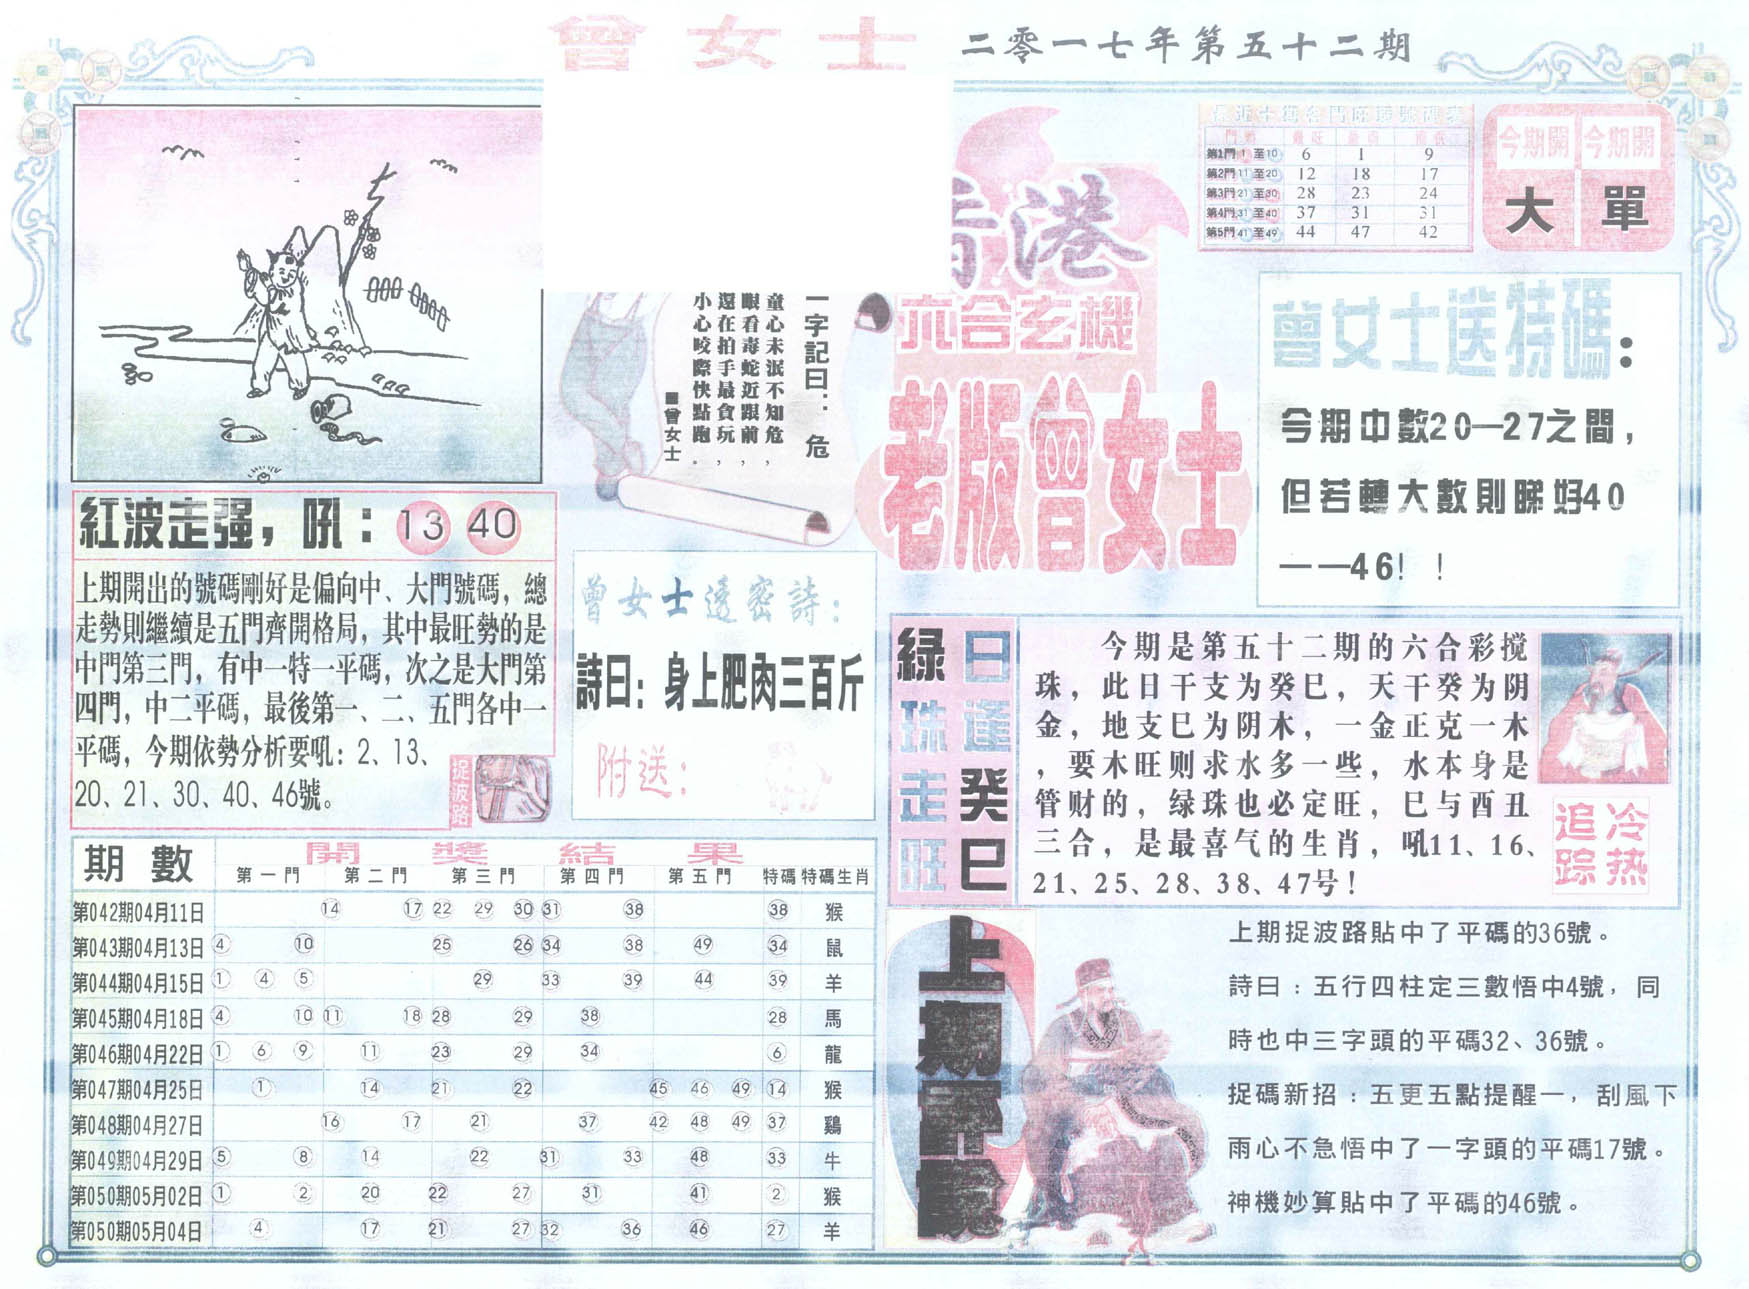 曾女士 二零一七年第五十二期
最近十期各門旺弱號碼表
第1門 1 至10 6 1 9
第2門 11 至20 12 18 17
第3門 21 至30 28 23 24
第4門 31 至40 37 31 31
第5門 41 至49 44 47 42
今期開 今期開
大 單
香港
六合玄機
老版曾女士
一字記曰：危
童心未泯不知危，
眼看毒蛇近跟前，
還在拍手最貪玩，
小心咬際快點跑。
曾女士
曾女士送特碼：
今期中數20—27之間，
但若轉大數則睇好40
——46！！
紅波走强，吼：13 40
上期開出的號碼剛好是偏向中、大門號碼，總
走勢則繼續是五門齊開格局，其中最旺勢的是
中門第三門，有中一特一平碼，次之是大門第
四門，中二平碼，最後第一、二、五門各中一
平碼，今期依勢分析要吼：2、13、
20、21、30、40、46號。
捉波路
曾女士透密詩：
詩曰：身上肥肉三百斤
附送：
日逢癸巳
緑珠走旺
今期是第五十二期的六合彩搅
珠，此日干支为癸巳，天干癸为阴
金，地支巳为阴木，一金正克一木
，要木旺则求水多一些，水本身是
管财的，绿珠也必定旺，巳与酉丑
三合，是最喜气的生肖，吼11、16、
21、25、28、38、47号！
冷热
追踪
期數 開獎結果
第一門 第二門 第三門 第四門 第五門 特碼 特碼生肖
第042期04月11日 14 17 22 29 30 31 38 38 猴
第043期04月13日 4 10 25 26 34 38 49 34 鼠
第044期04月15日 1 4 5 29 33 39 44 39 羊
第045期04月18日 4 10 11 18 28 29 38 28 馬
第046期04月22日 1 6 9 11 23 29 34 6 龍
第047期04月25日 1 14 21 22 45 46 49 14 猴
第048期04月27日 16 17 21 37 42 48 49 37 鷄
第049期04月29日 5 8 14 22 31 33 48 33 牛
第050期05月02日 1 2 20 22 27 31 41 2 猴
第050期05月04日 4 17 21 27 32 36 46 27 羊
上期評論
上期捉波路貼中了平碼的36號。
詩曰：五行四柱定三數悟中4號，同
時也中三字頭的平碼32、36號。
捉碼新招：五更五點提醒一，刮風下
雨心不急悟中了一字頭的平碼17號。
神機妙算貼中了平碼的46號。